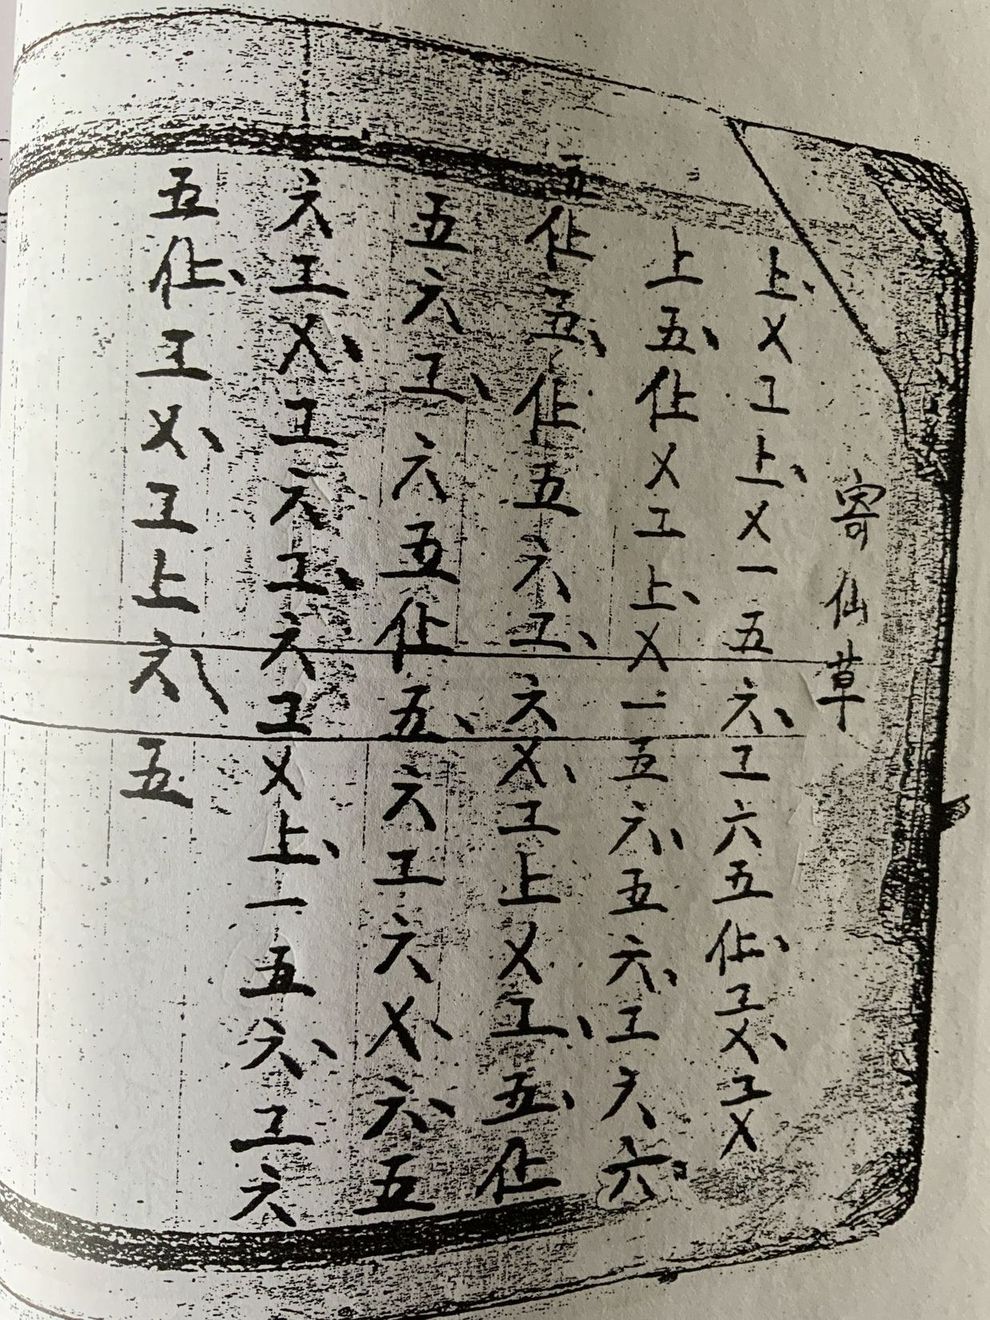 寄仙草
上、乂工上、乂一五六、工六五仩、工乂、工乂
上五、仩乂工上、乂一五六、五六、工六六
五仩五、仩五六工、六乂、工上乂工、五、仩
五六工、六五仩五、六工六乂、六、五
六工乂、工六工、六工乂上、一五六、工六
五仩、工乂、工上六、五